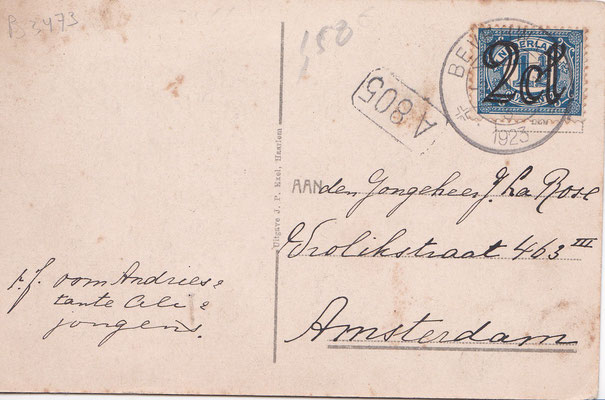 B 3473
1,50
BE
1923
NEDERLAND
2 ct
A 805
Uitgave J. P. Exel, Haarlem
AAN
den Jongeheer J. La Rose
Wrolikstraat 463 III
Amsterdam
t.f. oom Andries
tante Celi
jongens.